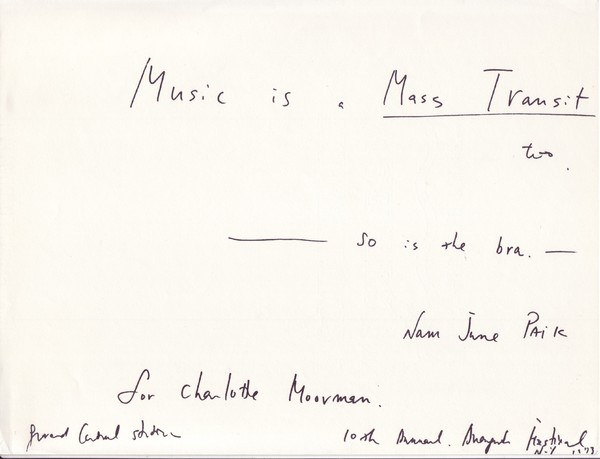 Music is a Mass Transit
too.
—— so is the bra. —
Nam June PAiK
for Charlotte Moorman.
Grand Central station
10th Annual. Avangarde Festival
N.Y 1973